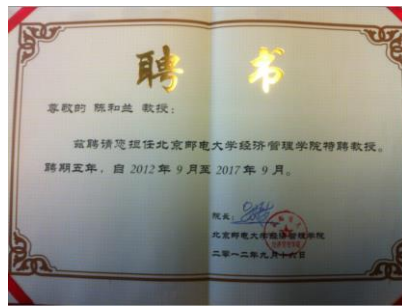 聘书
尊敬的 陈和兰 教授：
兹聘请您担任北京邮电大学经济管理学院特聘教授。
聘期五年，自 2012 年 9 月至 2017 年 9 月。
院长：
北京邮电大学经济管理学院
二零一二年九月十六日